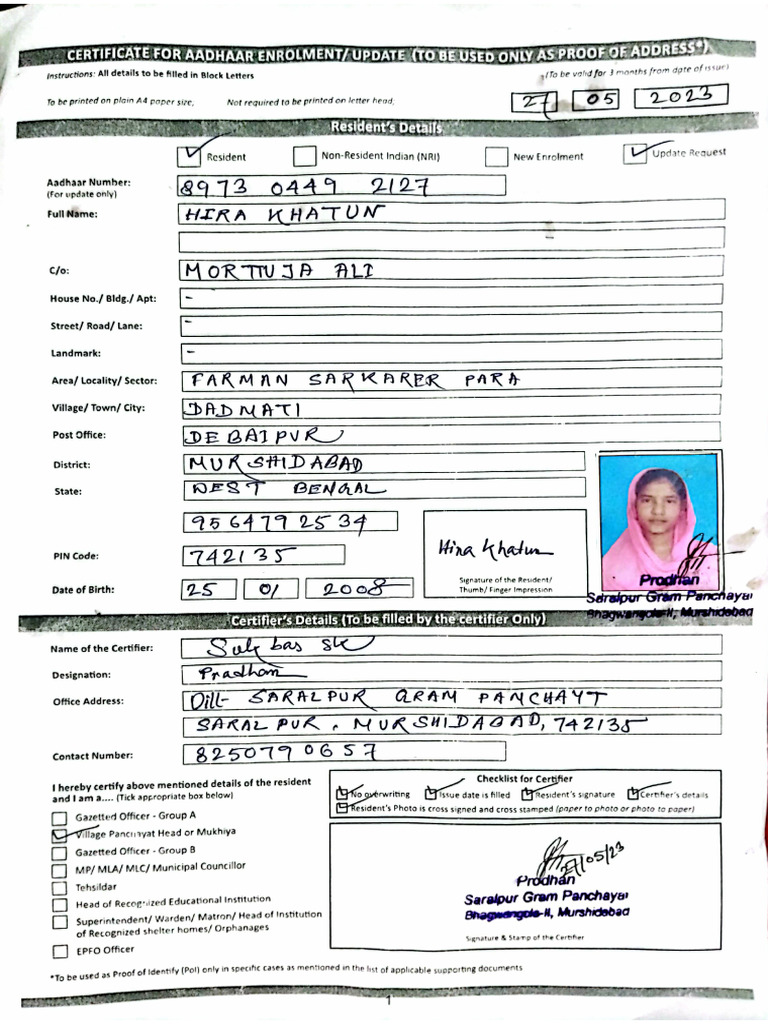 CERTIFICATE FOR AADHAAR ENROLMENT/ UPDATE (TO BE USED ONLY AS PROOF OF ADDRESS*)
Instructions: All details to be filled in Block Letters
(To be valid for 3 months from date of issue)
To be printed on plain A4 paper size, Not required to be printed on letter head,
27 05 2023
Resident's Details
Resident Non-Resident Indian (NRI) New Enrolment Update Request
Aadhaar Number: 8973 0449 2127
(For update only)
Full Name: HIRA KHATUN
C/o: MORTUJA ALI
House No./ Bldg./ Apt: -
Street/ Road/ Lane: -
Landmark: -
Area/ Locality/ Sector: FARMAN SARKARER PARA
Village/ Town/ City: DADMATI
Post Office: DEBAIPUR
District: MURSHIDABAD
State: WEST BENGAL
9564792534
PIN Code: 742135
Hira Khatun
Signature of the Resident/
Thumb/ Finger Impression
Date of Birth: 25 01 2008
Prodhan
Saralpur Gram Panchayat
Bhagwangola-II, Murshidabad
Certifier's Details (To be filled by the certifier Only)
Name of the Certifier: Suk bas sk
Designation: Pradhan
Office Address: Vill- SARALPUR GRAM PANCHAYT
SARALPUR, MURSHIDABAD, 742135
Contact Number: 8250790657
I hereby certify above mentioned details of the resident
and I am a.... (Tick appropriate box below)
Gazetted Officer - Group A
Village Panchayat Head or Mukhiya
Gazetted Officer - Group B
MP/ MLA/ MLC/ Municipal Councillor
Tehsildar
Head of Recognized Educational Institution
Superintendent/ Warden/ Matron/ Head of Institution
of Recognized shelter homes/ Orphanages
EPFO Officer
Checklist for Certifier
No overwriting Issue date is filled Resident's signature Certifier's details
Resident's Photo is cross signed and cross stamped (paper to photo or photo to paper)
27/05/23
Prodhan
Saralpur Gram Panchayat
Bhagwangola-II, Murshidabad
Signature & Stamp of the Certifier
*To be used as Proof of Identify (PoI) only in specific cases as mentioned in the list of applicable supporting documents
1